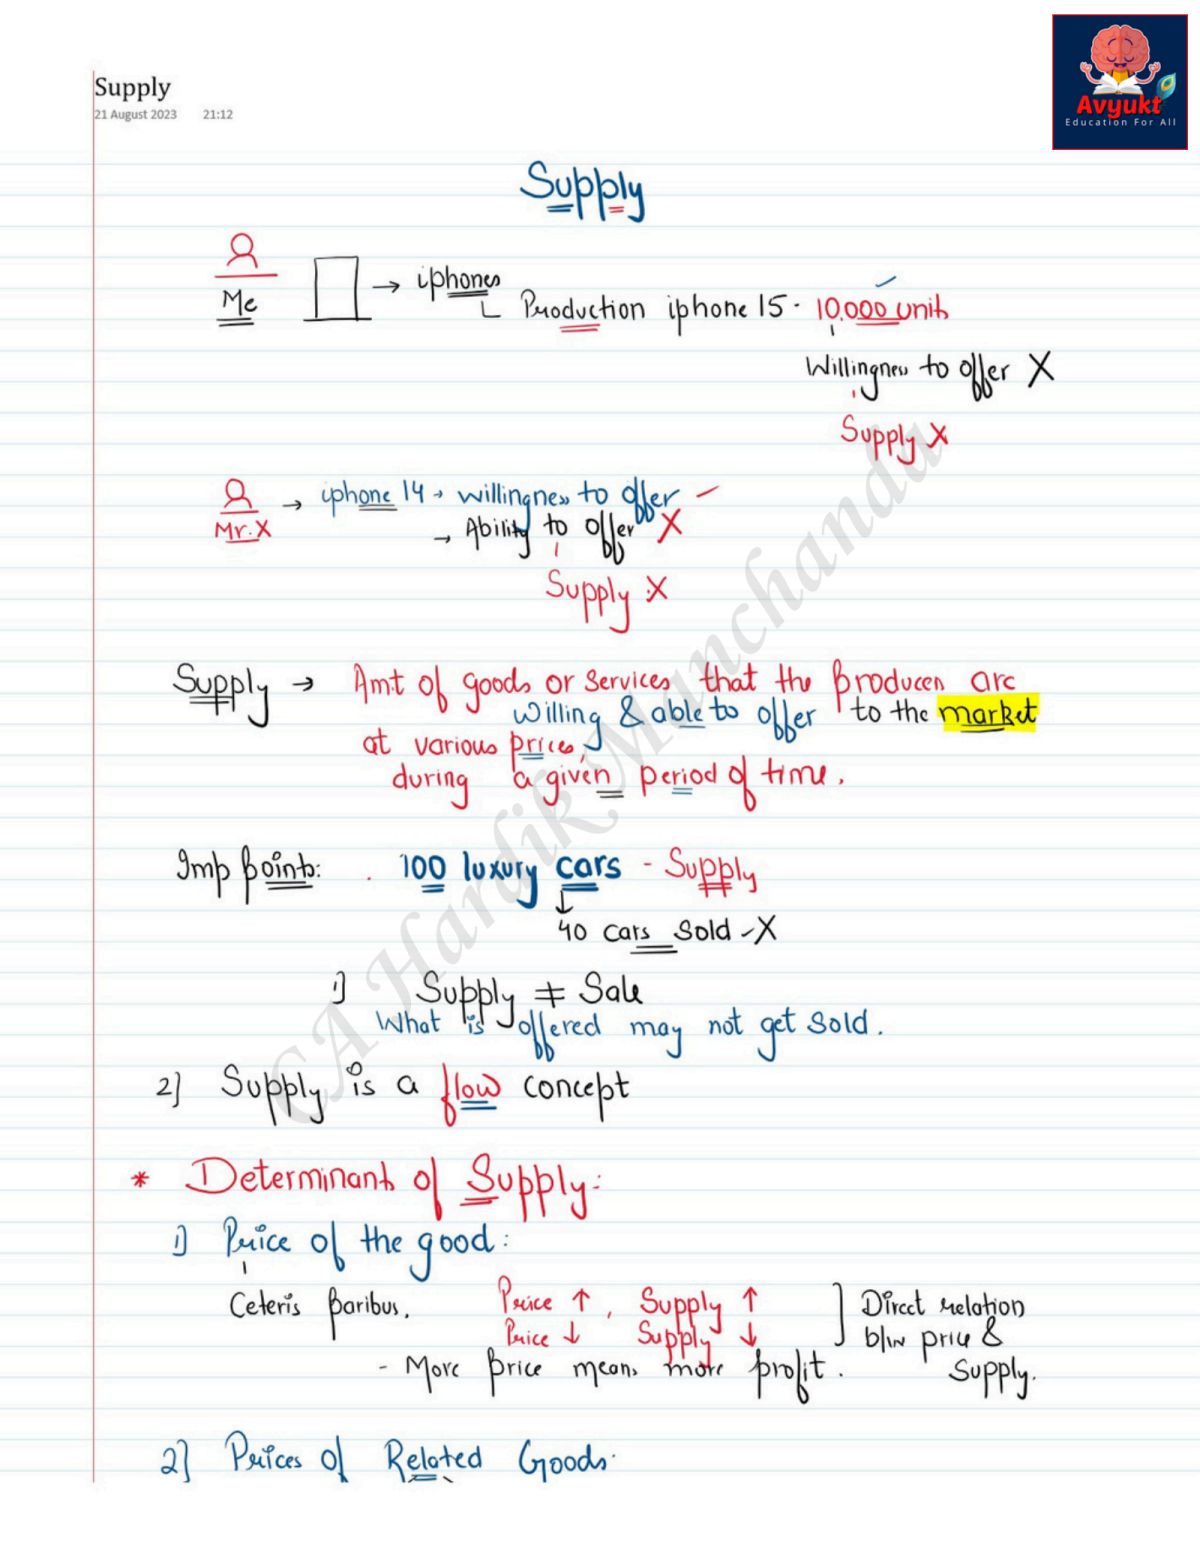 Avyukt
Education For All
Supply
21 August 2023 21:12
Supply
Me → iphones
Production iphone 15 - 10,000 units
Willingness to offer X
Supply X
Mr. X → iphone 14 → willingness to offer
→ Ability to offer X
Supply X
Supply → Amt of goods or services that the producers are
willing & able to offer to the market
at various prices,
during a given period of time.
Imp points: . 100 luxury cars - Supply
↓
40 cars sold - X
1] Supply ≠ Sale
What is offered may not get sold.
2] Supply is a flow concept
* Determinants of Supply:
1] Price of the good:
Ceteris paribus. Price ↑, Supply ↑ ] Direct relation
Price ↓ Supply ↓ b/w price &
- More price means more profit. Supply.
2] Prices of Related Goods:
CA Hardik Manchanda